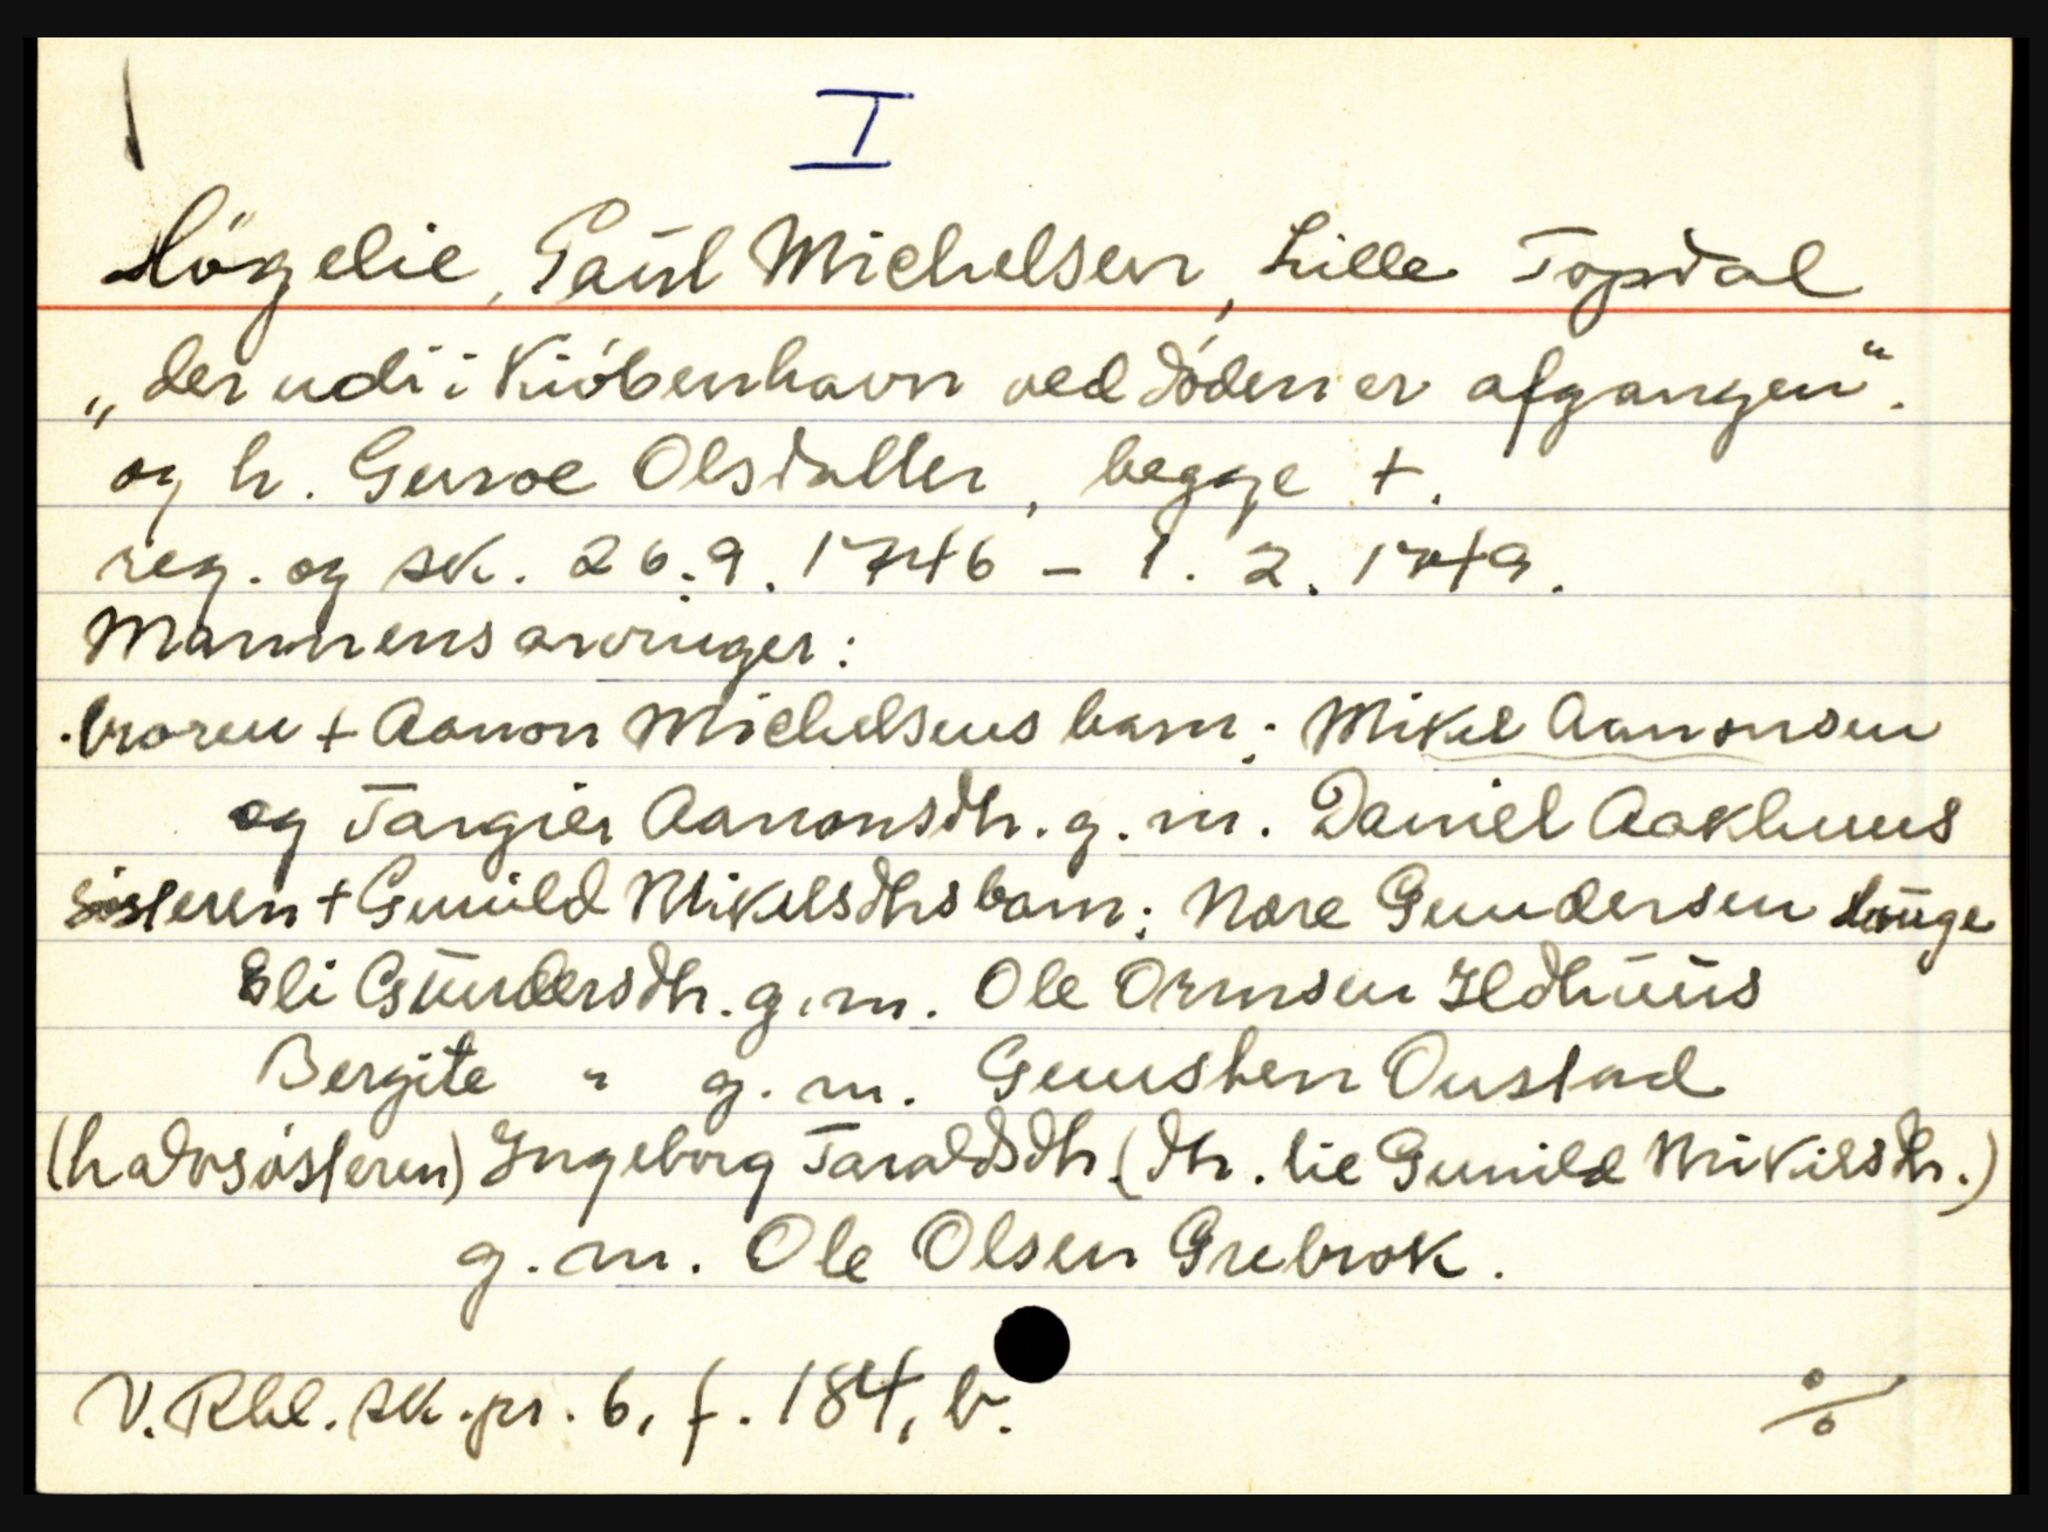 I
Högelie, Paül Michelsen, Lille Topdal
„der udi i Kiöbenhavn ved döden er afgangen“.
og h. Guroe Olsdatter, begge +.
reg. og sk. 26.9.1746 - 1.2.1749.
Mannens arvinger:
broren + Aanon Michelsens barn: Mikel Aanonsen
og Targier Aanonsdtr. g. m. Daniel Aakhuus
sisteren + Gunild Mikelsdtrs barn: Nare Gundersen Houge
Eli Gündersdtr. g. m. Ole Ormsen Ildhüüs
Bergite " g. m. Gunsten Oustad
(halvsösteren) Ingeborg Taraldsdtr. (dtr. tie Gunild Mikilsdtr.)
g. m. Ole Olsen Grebrok.
V. Rbl. sk. pr. 6, f. 184, b.
%